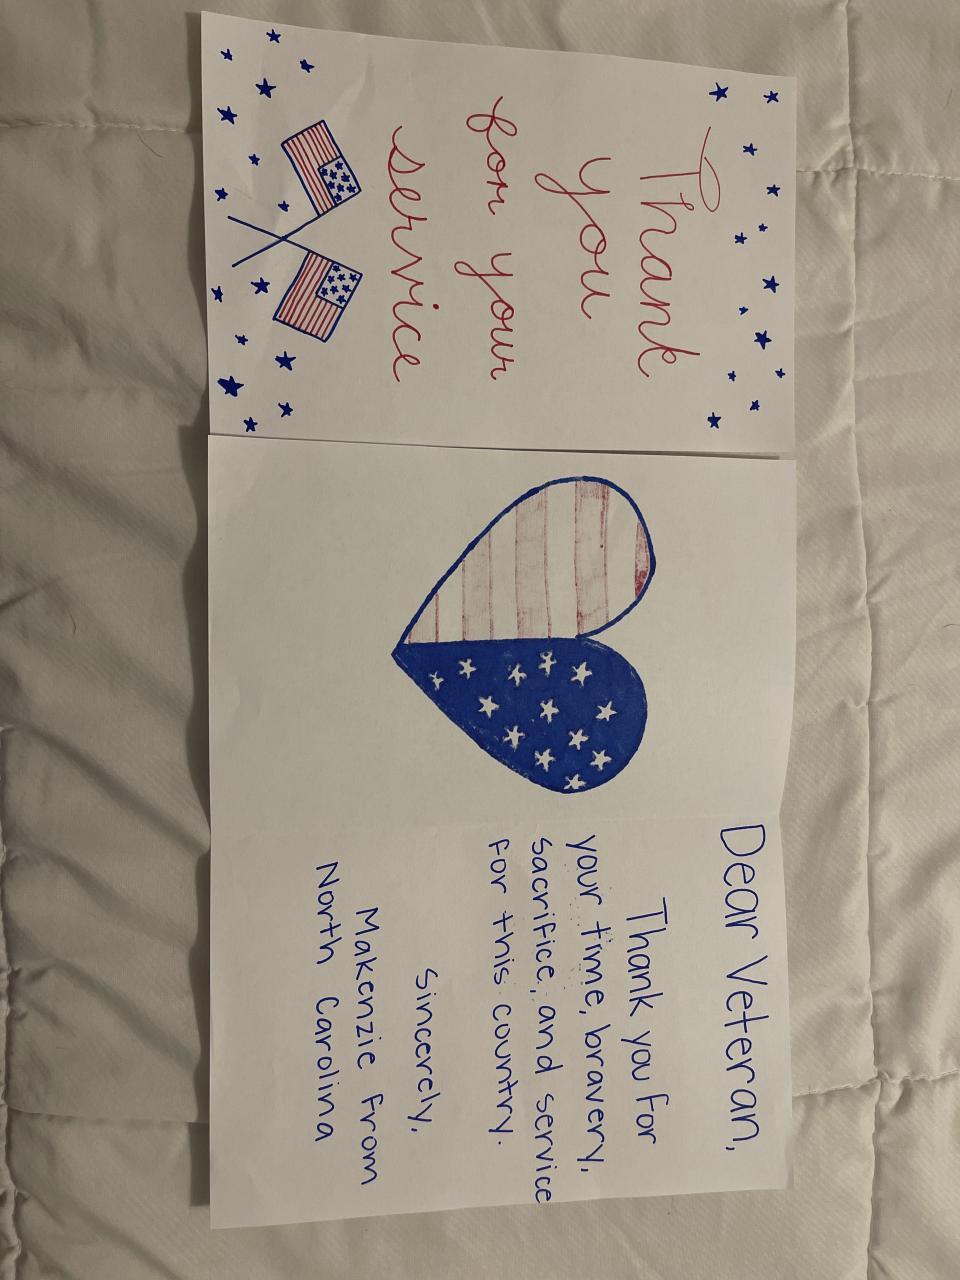 Thank
you
for your
service
Dear Veteran,
Thank you for
your time, bravery,
sacrifice, and service
for this country.
Sincerely,
Makenzie From
North Carolina